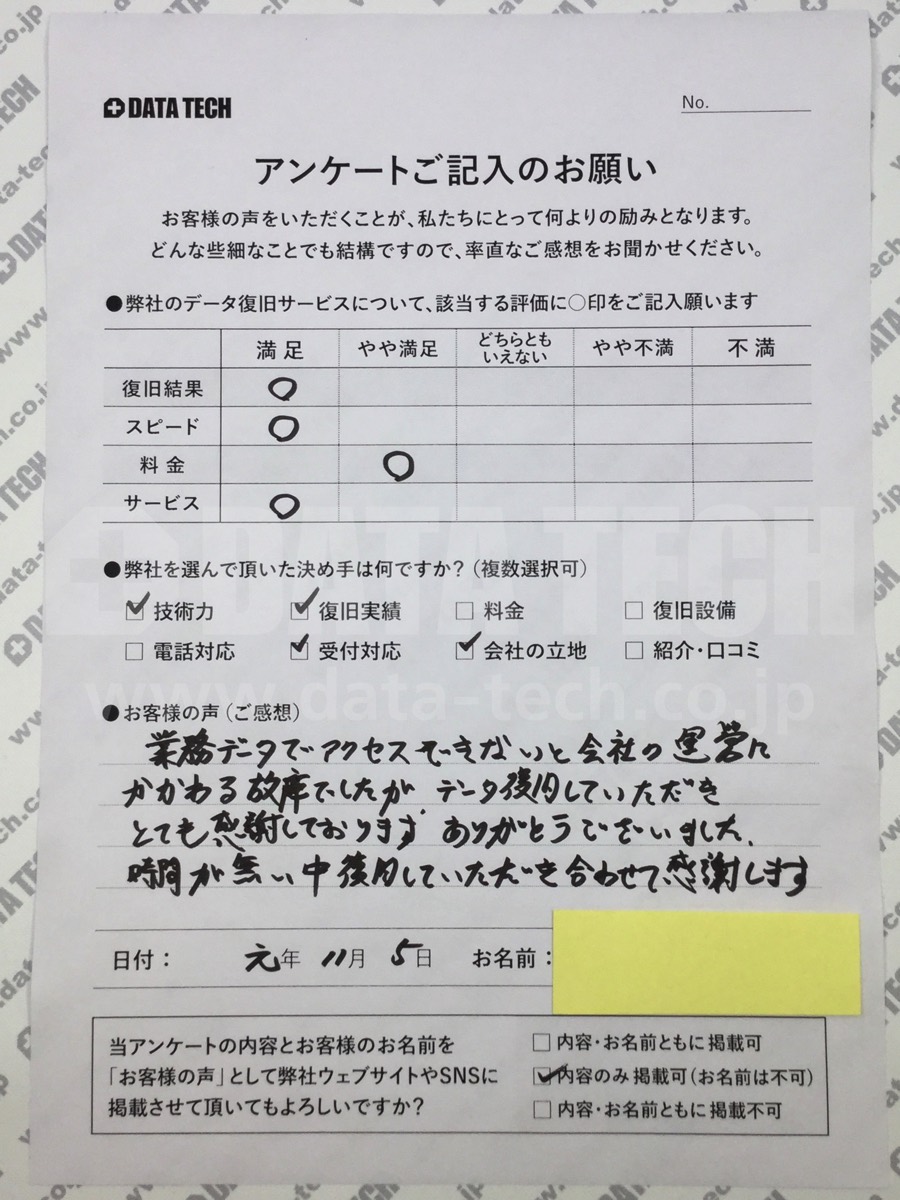 DATA TECH
No.
アンケートご記入のお願い
お客様の声をいただくことが、私たちにとって何よりの励みとなります。
どんな些細なことでも結構ですので、率直なご感想をお聞かせください。
●弊社のデータ復旧サービスについて、該当する評価に○印をご記入願います
満足 やや満足 どちらとも いえない やや不満 不満
復旧結果 ○
スピード ○
料金 ○
サービス ○
DATA TECH
●弊社を選んで頂いた決め手は何ですか?(複数選択可)
☑技術力 ☑復旧実績 □料金 □復旧設備
□電話対応 ☑受付対応 ☑会社の立地 □紹介・口コミ
www.data-tech.co.jp
●お客様の声(ご感想)
業務データでアクセスできないと会社の運営に
かかわる故障でしたがデータ復旧していただき
とても感謝しております ありがとうございました.
時間が無い中復旧していただき合わせて感謝します
日付: 元年 11月 5日 お名前:
当アンケートの内容とお客様のお名前を
「お客様の声」として弊社ウェブサイトやSNSに
掲載させて頂いてもよろしいですか?
□内容・お名前ともに掲載可
☑内容のみ掲載可(お名前は不可)
□内容・お名前ともに掲載不可